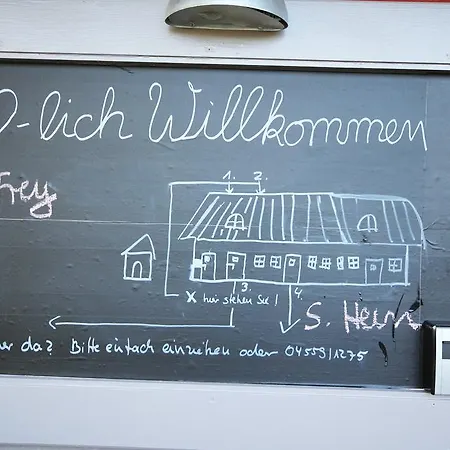 -lich Willkommen
Frey
1. 2.
3.
X hier stehen Sie! 4.
S. Hein
da? Bitte einfach einziehen oder 04559/1275